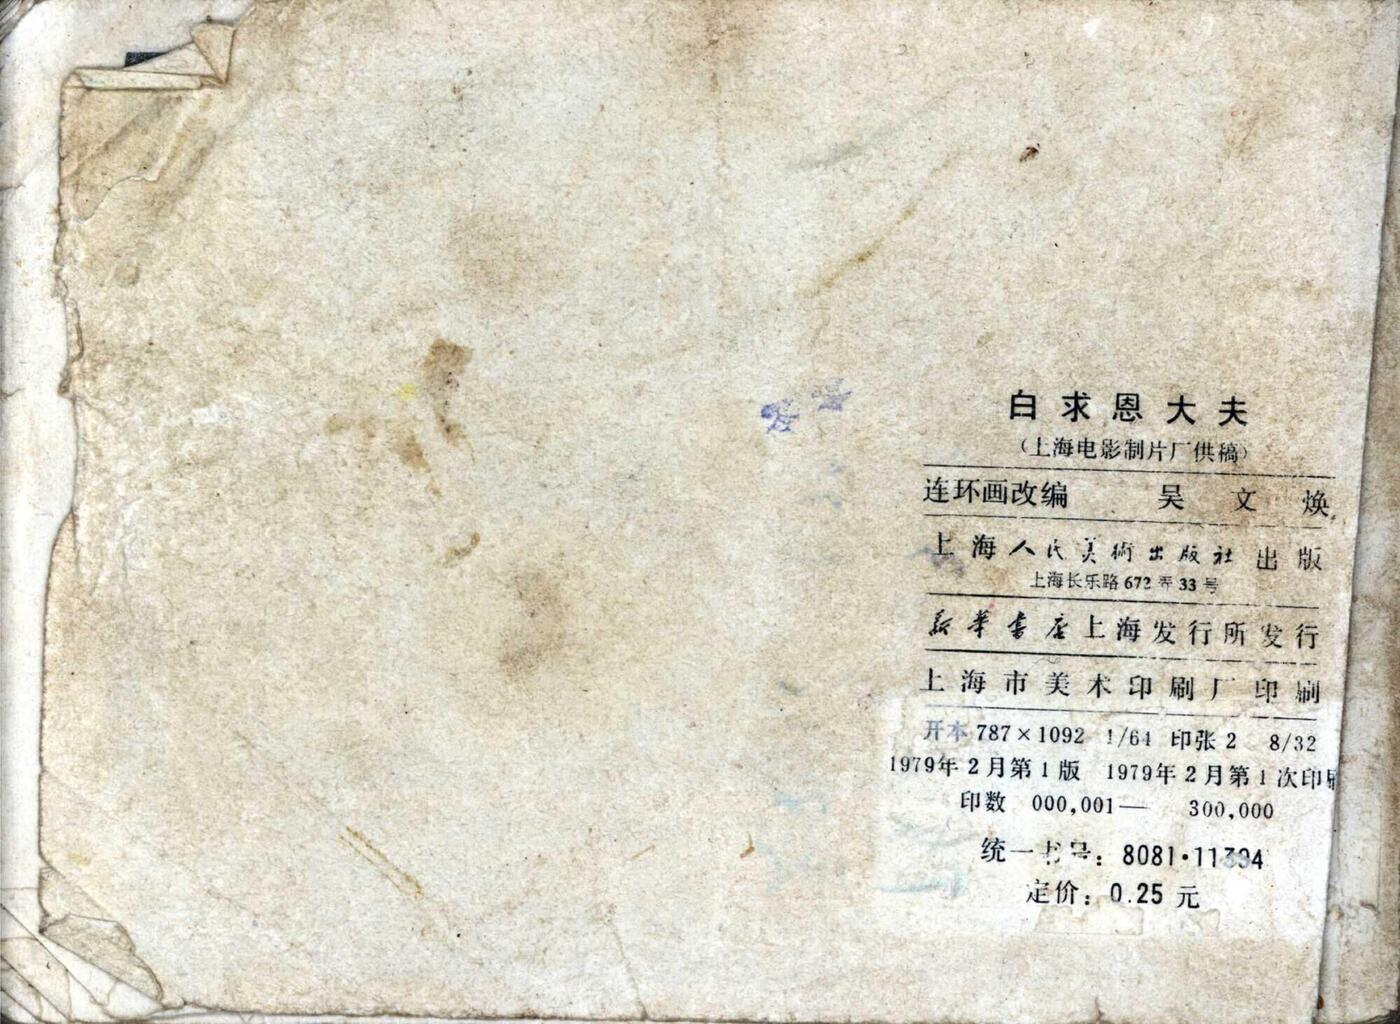 白求恩大夫
（上海电影制片厂供稿）
连环画改编 吴文焕
上海人民美術出版社出版
上海长乐路672弄33号
新华書店上海发行所发行
上海市美术印刷厂印刷
开本 787×1092 1/64 印张 2 8/32
1979年2月第1版 1979年2月第1次印刷
印数 000,001— 300,000
统一书号：8081·11394
定价：0.25 元